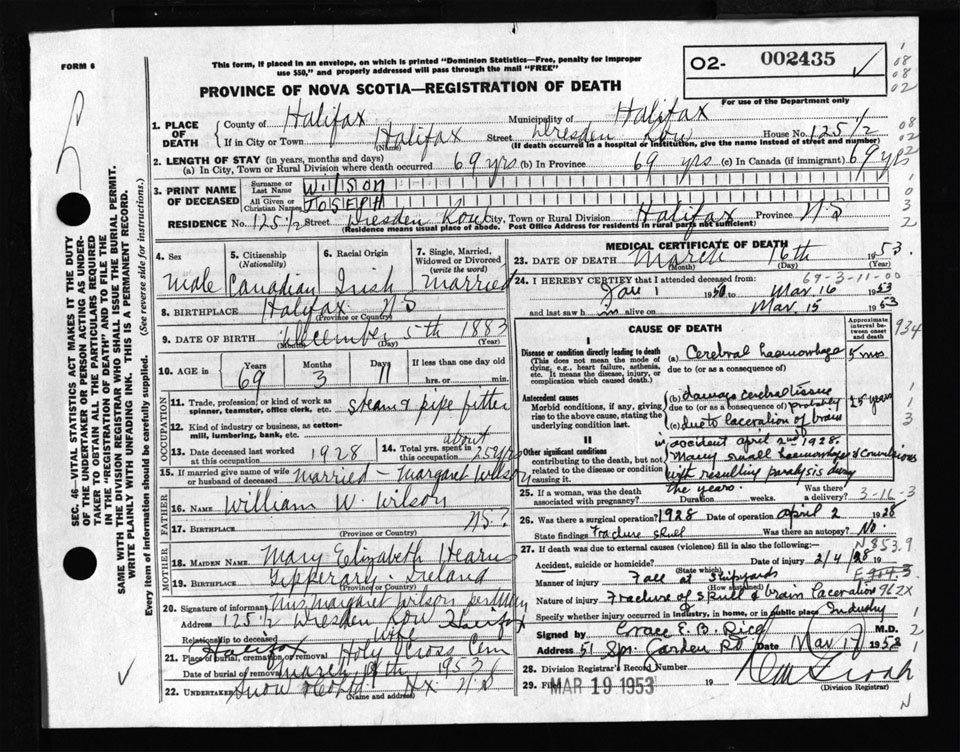 FORM 6
This form, if placed in an envelope, on which is printed "Dominion Statistics—Free, penalty for improper
use $50," and properly addressed will pass through the mail "FREE"
O2- 002435 ✓
PROVINCE OF NOVA SCOTIA—REGISTRATION OF DEATH
For use of the Department only
1. PLACE OF DEATH
County of Halifax Municipality of Halifax
If in City or Town Halifax Street Dresden Row House No. 125 1/2
(Name) (If death occurred in a hospital or institution, give the name instead of street and number)
2. LENGTH OF STAY (in years, months and days)
(a) In City, Town or Rural Division where death occurred 69 yrs (b) In Province 69 yrs (c) In Canada (if immigrant) 69 yrs
3. PRINT NAME OF DECEASED
Surname or Last Name WILSON
All Given or Christian Names JOSEPH
RESIDENCE No. 125 1/2 Street Dresden Row City, Town or Rural Division Halifax Province NS
(Residence means usual place of abode. Post Office Address for residents in rural parts not sufficient)
4. Sex
Male
5. Citizenship
(Nationality)
Canadian
6. Racial Origin
Irish
7. Single, Married, Widowed or Divorced
(write the word)
Married
8. BIRTHPLACE Halifax NS
(Province or Country)
9. DATE OF BIRTH December 5th 1883
(Month) (Day) (Year)
10. AGE in Years Months Days If less than one day old
69 3 11 hrs. or min.
OCCUPATION
11. Trade, profession, or kind of work as
spinner, teamster, office clerk, etc. Steam & pipe fitter
12. Kind of industry or business, as cotton-
mill, lumbering, bank, etc.
13. Date deceased last worked
at this occupation 1928
14. Total yrs. spent in
this occupation about 25 yrs
15. If married give name of wife
or husband of deceased Married - Margaret Wilson
FATHER
16. NAME William W. Wilson
17. BIRTHPLACE NS?
(Province or Country)
MOTHER
18. MAIDEN NAME Mary Elizabeth Hearns
19. BIRTHPLACE Tipperary - Ireland
(Province or Country)
20. Signature of informant Mrs Margaret Wilson per
Address 125 1/2 Dresden Row Halifax
Relationship to deceased wife
21. Place of burial, cremation or removal Halifax Holy Cross Cem
Date of burial or removal March 1953
22. Undertaker Snow & Co Ltd Hx N.S
(Name and address)
MEDICAL CERTIFICATE OF DEATH
23. DATE OF DEATH March 16th 1953
(Month) (Day) (Year)
69-3-11-00
24. I HEREBY CERTIFY that I attended deceased from:
Jan 1 1950 to Mar 16 1953
and last saw him alive on Mar. 15 1953
CAUSE OF DEATH
Approximate interval between onset and death
I
Disease or condition directly leading to death
(This does not mean the mode of dying, e.g., heart failure, asthenia, etc. It means the disease, injury, or complication which caused death.)
(a) Cerebral haemorrhage 5 mos
due to (or as a consequence of)
Antecedent causes
Morbid conditions, if any, giving rise to the above cause, stating the underlying condition last.
(b) damage cerebral tissue 25 years
due to (or as a consequence of) probably
(c) due to laceration of brain
in accident april 2nd 1928.
II
Other significant conditions
contributing to the death, but not related to the disease or condition causing it.
Many small haemorrhages & convulsions
with resulting paralysis during
the years.
25. If a woman, was the death associated with pregnancy? Duration weeks. Was there a delivery? 3-16-3
26. Was there a surgical operation? 1928 Date of operation April 2 1928
State findings Fracture skull Was there an autopsy? No.
27. If death was due to external causes (violence) fill in also the following: N853.9
Accident, suicide or homicide? Date of injury 2/4/1928
(State which)
Manner of injury Fall at Shipyards
(How sustained)
Nature of injury Fracture of Skull & brain laceration 962X
Specify whether injury occurred in industry, in home, or in public place Industry
Signed by Grace E. B. Rice M.D.
Address 51 Spr. Garden Rd Date Mar 17 1953
28. Division Registrar's Record Number
29. Filed MAR 19 1953 19
(Division Registrar)
934
SEC. 46—VITAL STATISTICS ACT MAKES IT THE DUTY
OF THE UNDERTAKER OR PERSON ACTING AS UNDER-
TAKER TO OBTAIN ALL THE PARTICULARS REQUIRED
IN THE "REGISTRATION OF DEATH" AND TO FILE THE
SAME WITH THE DIVISION REGISTRAR WHO SHALL ISSUE THE BURIAL PERMIT.
WRITE PLAINLY WITH UNFADING INK. THIS IS A PERMANENT RECORD.
Every item of information should be carefully supplied. (See reverse side for instructions.)